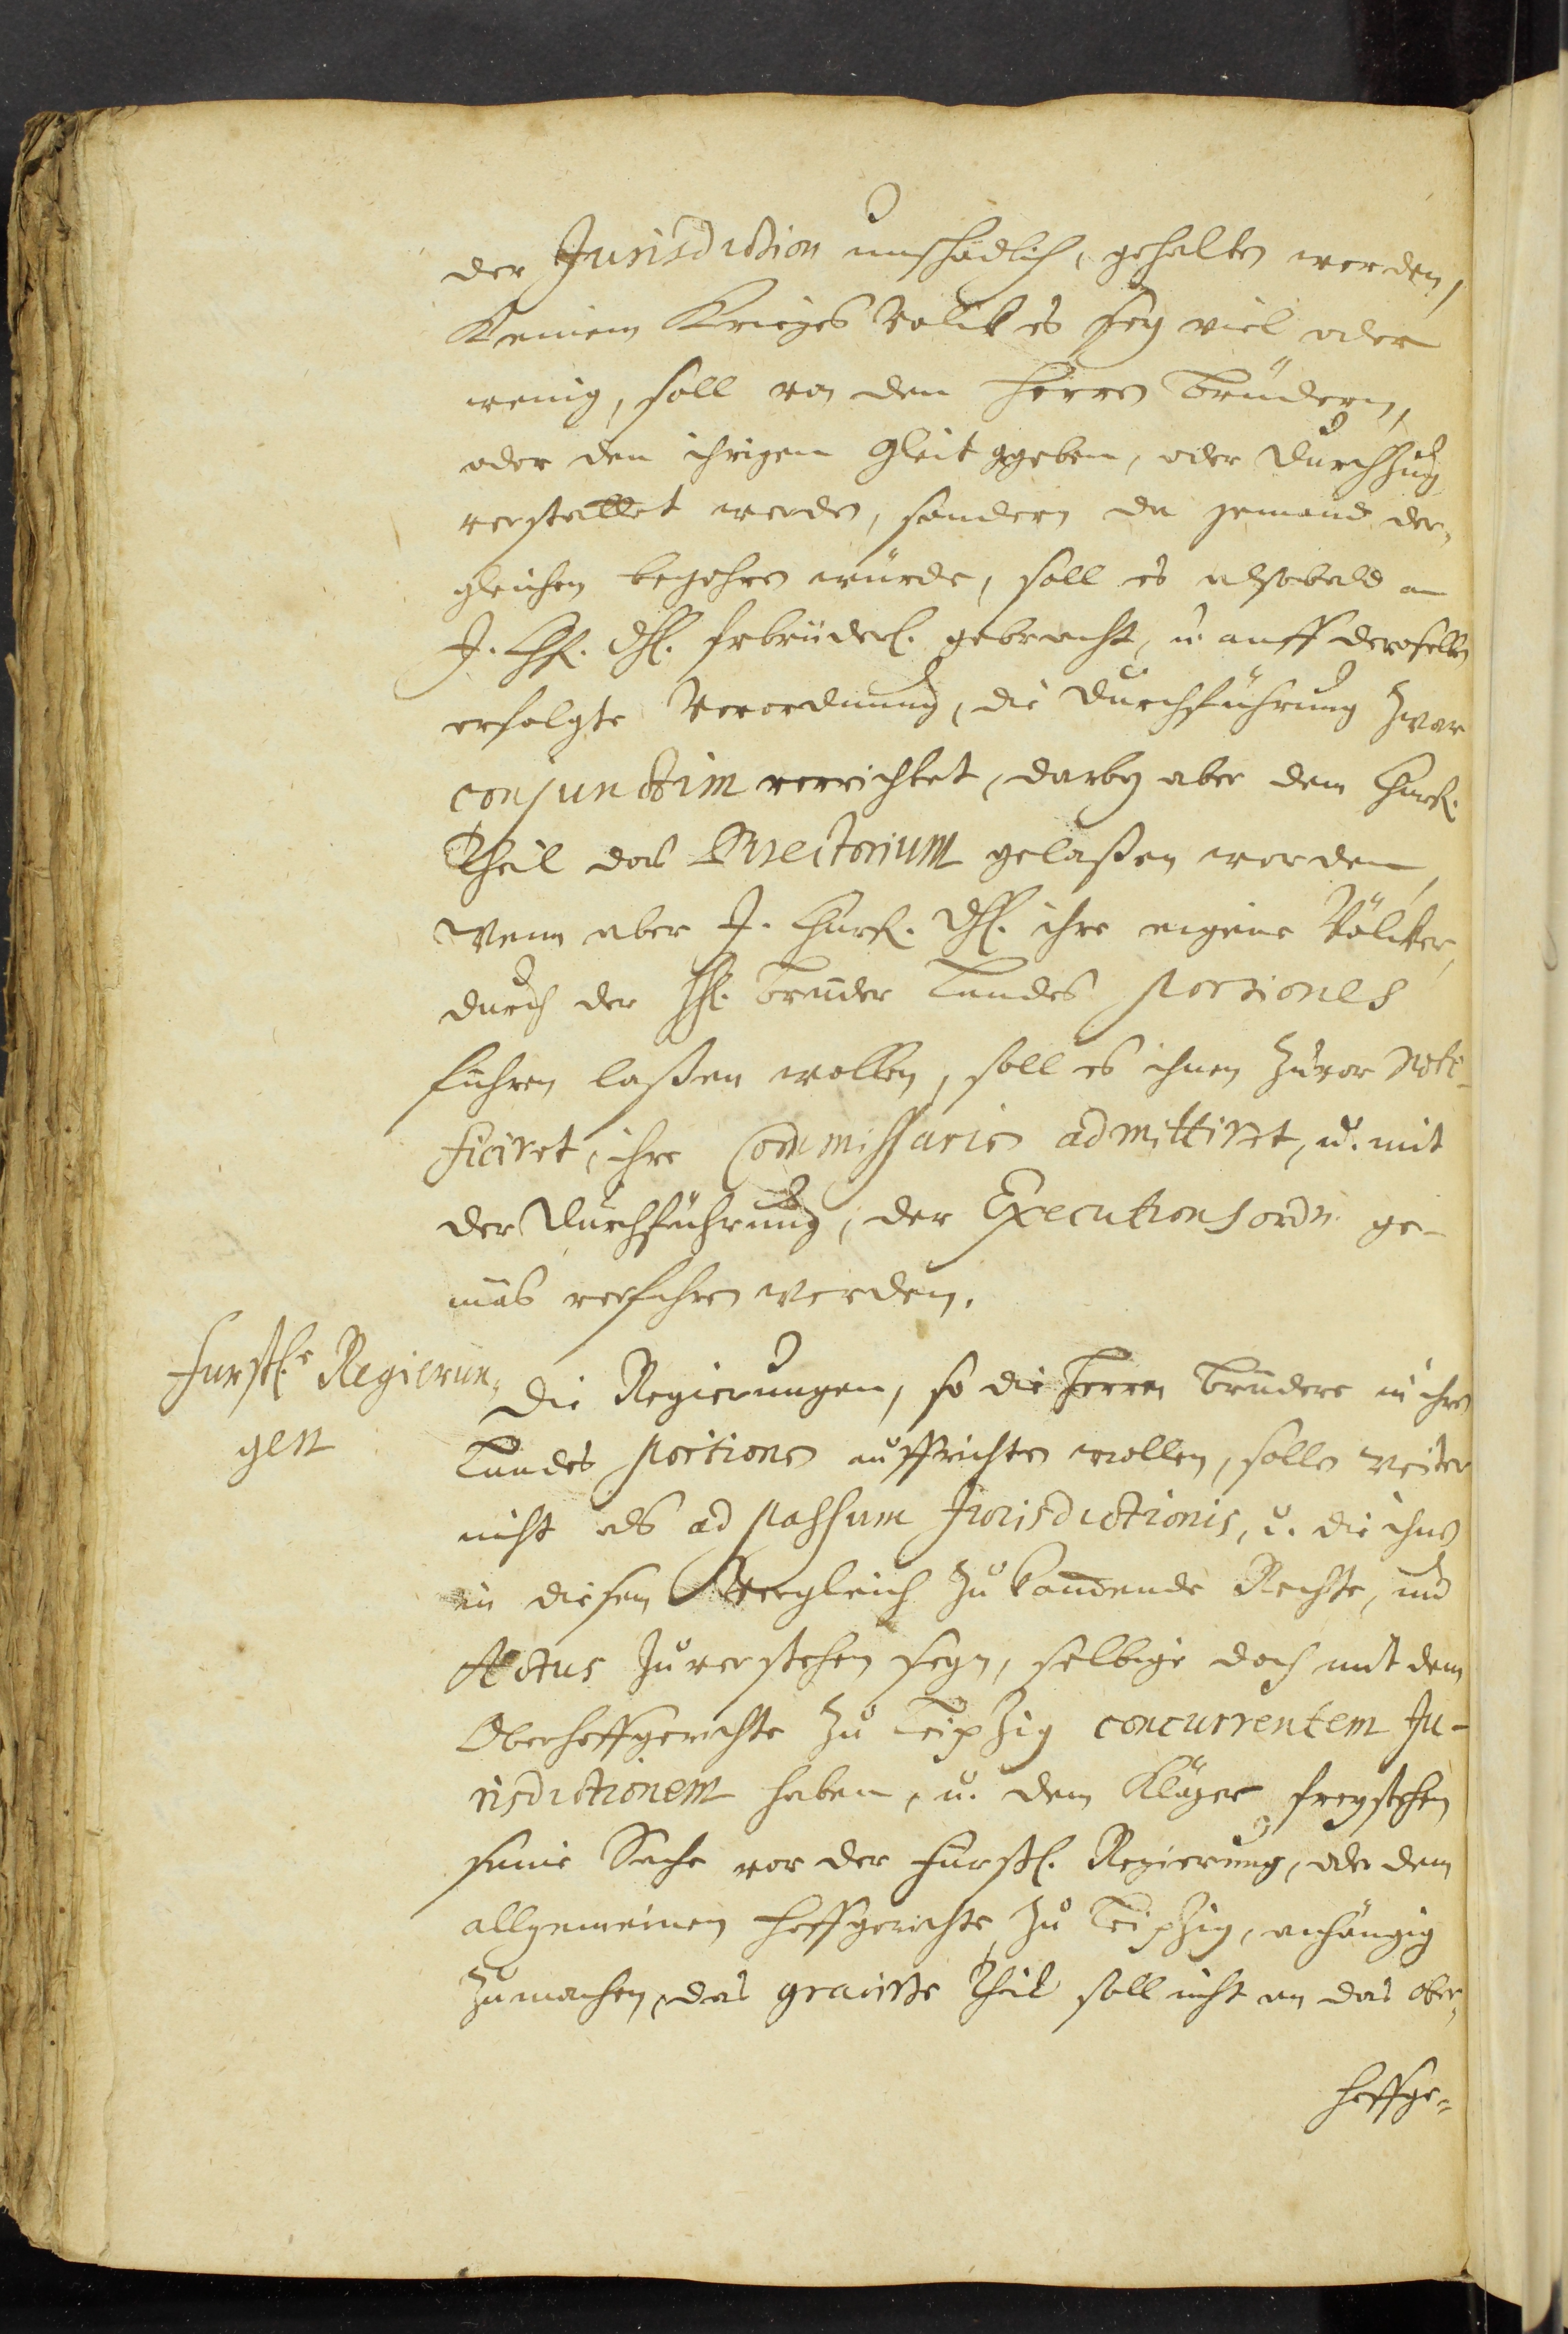 der Jurisdiction unschädlich, gehalten werden,
Keinem Krieges Volck es sey viel oder
wenig, soll von den Herren Brüdern,
oder den ihrigen Gleit ggeben, oder Durchzug
verstattet werden, sondern da jemand der„
gleichen begehren würde, soll es alsobald an
J. Chf. Dhl. frbrüderl. gebracht, u. auff deroselben
erfolgte Verordnung, die Durchführung zwar
conjunctim verrichtet, darbey aber dem Churf.
Theil das Directorium gelaßen werden,
Wenn aber J. Churf. Dhl. ihre eigene Völcker,
durch der Hh. Brüder Landes Portiones
führen laßen wollen, soll es ihnen zuvor noti-
ficiret, ihre Commissarien admittiret, u. mit
der Durchführung, der Executionsordn. ge-
mäs verfahren werden.
Furstl.e Regierun„
gen
Die Regierungen, so die Herren Brüdere in ihren
Landes Portionen auffrichten wollen, sollen weiter
nicht als ad passum Jurisdictionis, u. die ihnen
in diesen Vergleich zukommende Rechte, und
Actus zuverstehen seyn, selbige doch mit dem
Oberhoffgerichte zu Leipzig concurrentem Ju-
risdictionem haben, u. dem Kläger freystehen
seine Sache vor der Fürstl. Regierung, oder dem
allgemeinen Hoffgerichte zu Leipzig, anhängig
zumachen, das gravirte Theil soll nicht an das Ober„
hoffge„